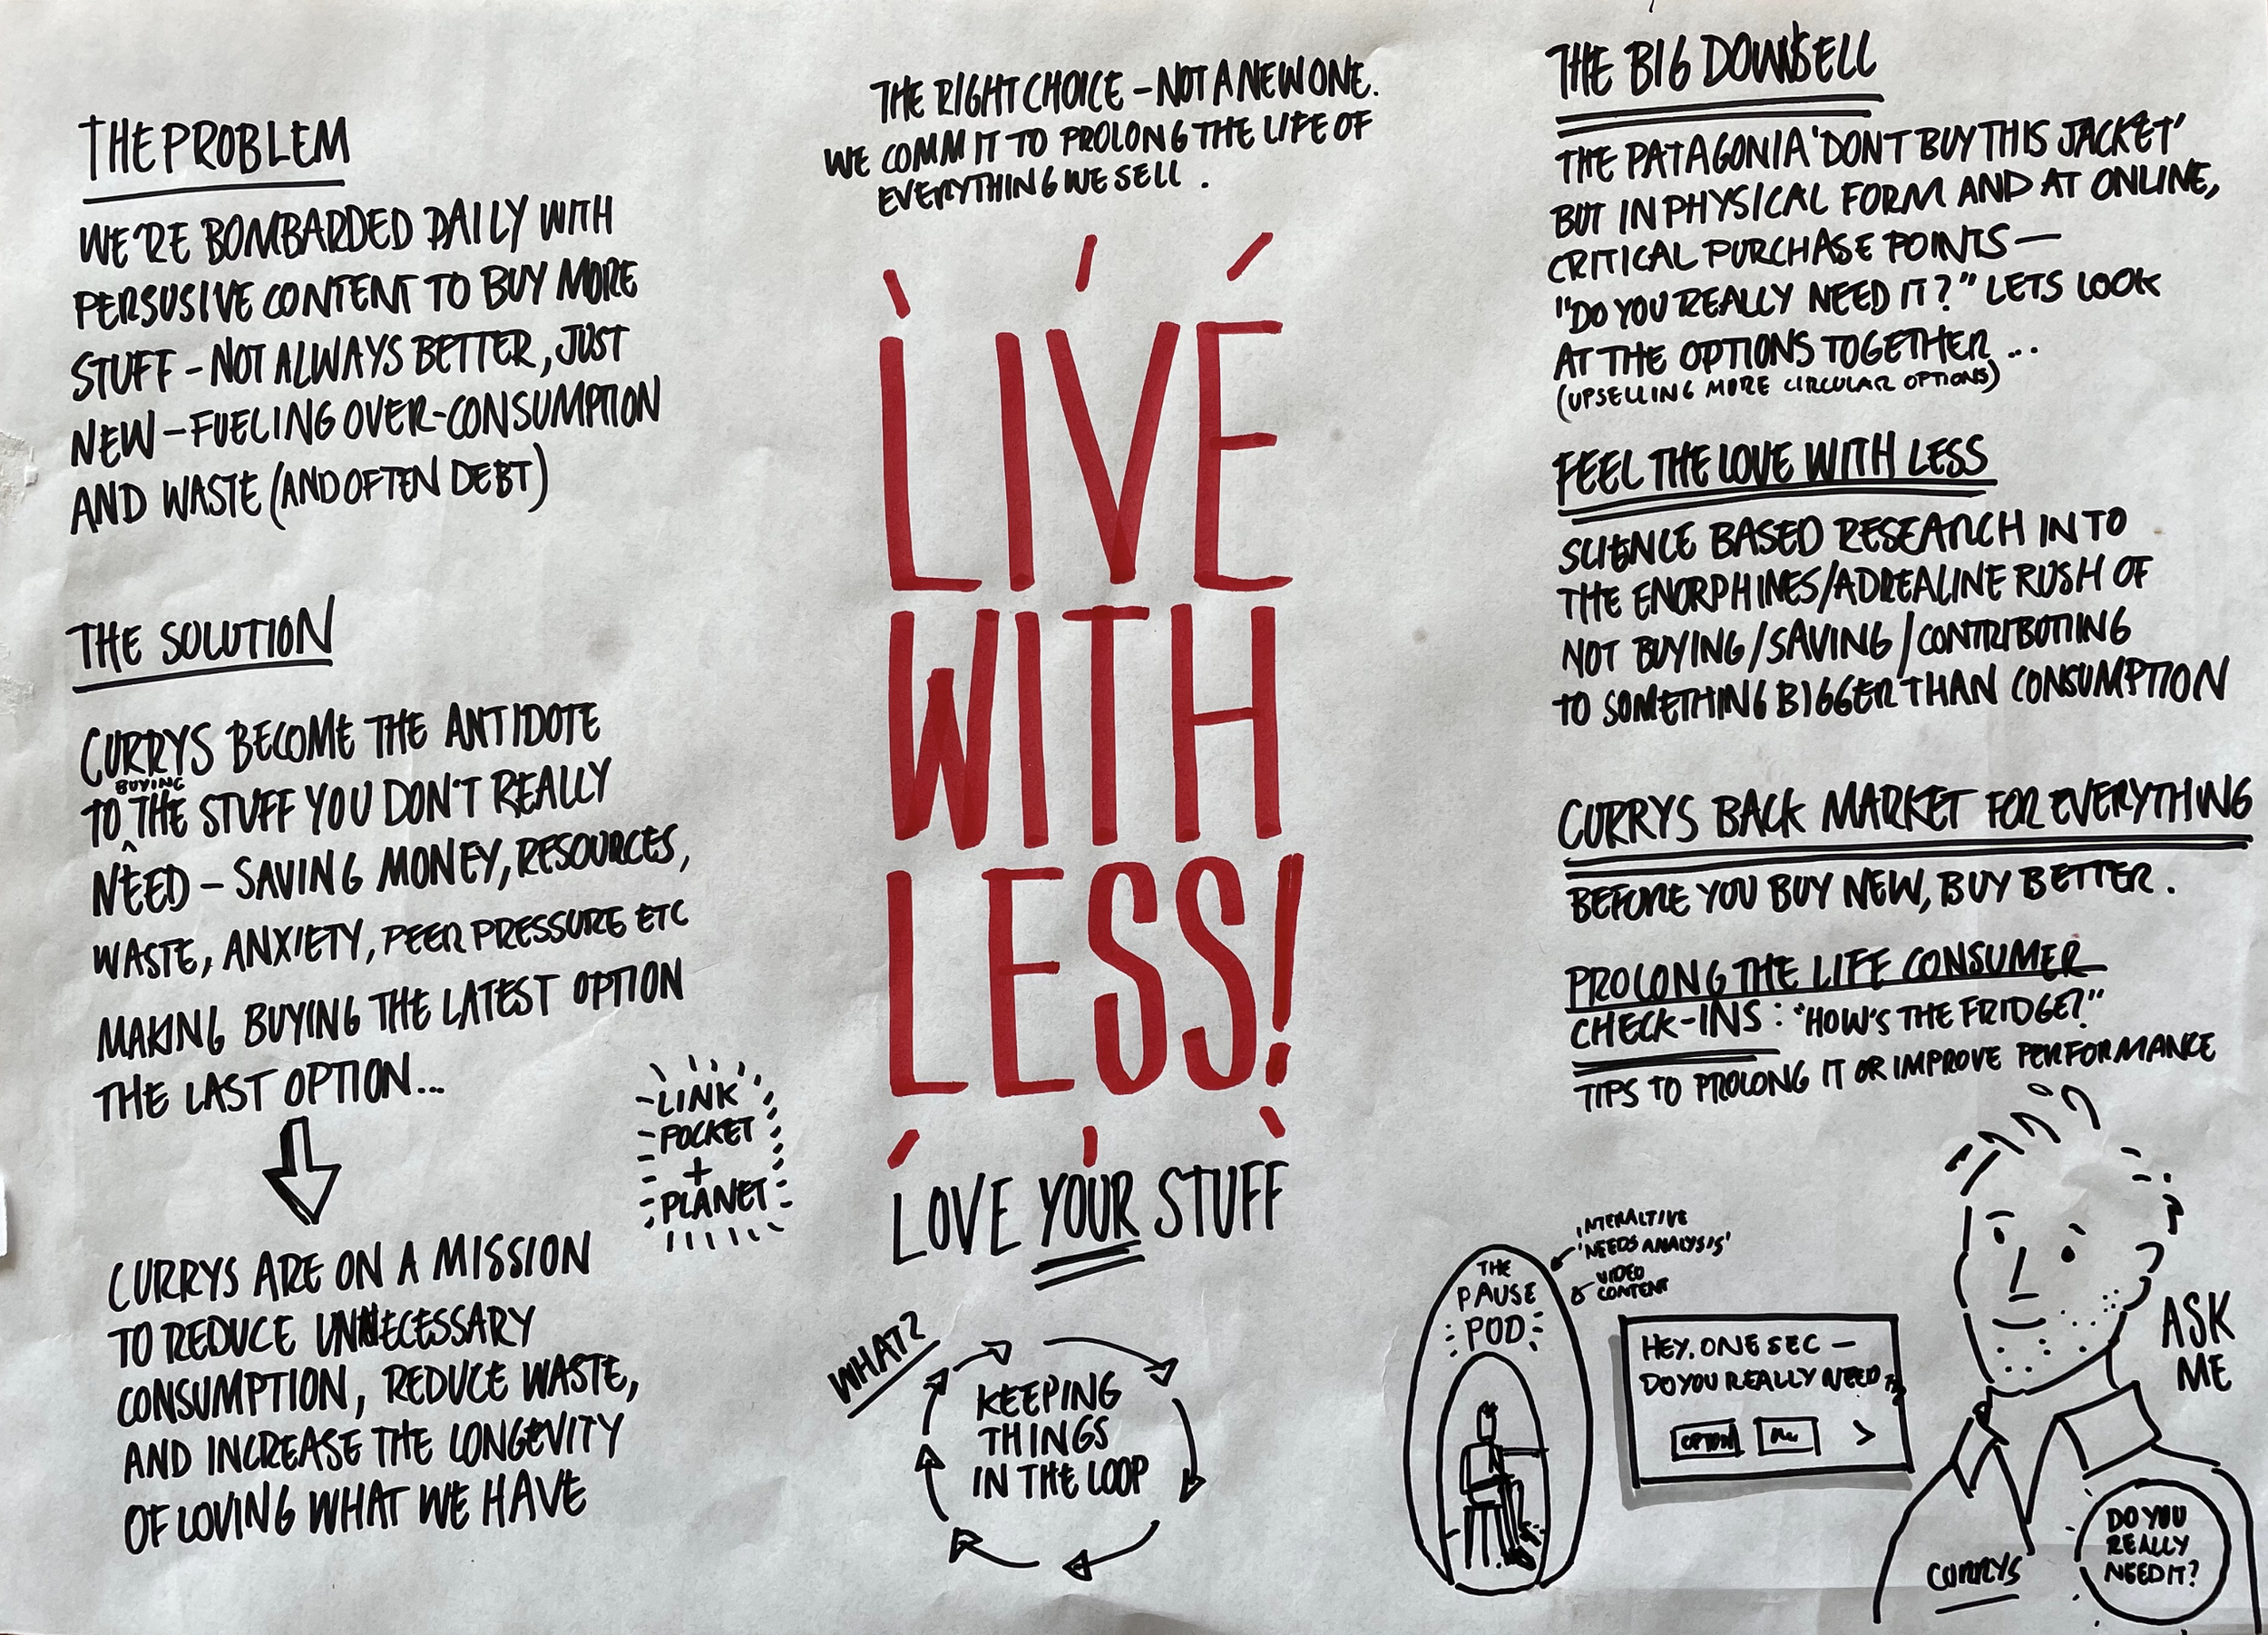 THE PROBLEM
WE'RE BOMBARDED DAILY WITH
PERSUSIVE CONTENT TO BUY MORE
STUFF - NOT ALWAYS BETTER, JUST
NEW - FUELING OVER-CONSUMPTION
AND WASTE (AND OFTEN DEBT)
THE SOLUTION
CURRYS BECOME THE ANTIDOTE
BUYING
TO ^ THE STUFF YOU DON'T REALLY
NEED - SAVING MONEY, RESOURCES,
WASTE, ANXIETY, PEER PRESSURE ETC
MAKING BUYING THE LATEST OPTION
THE LAST OPTION...
CURRYS ARE ON A MISSION
TO REDUCE UNNECESSARY
CONSUMPTION, REDUCE WASTE,
AND INCREASE THE LONGEVITY
OF LOVING WHAT WE HAVE
LINK
POCKET
+
PLANET
THE RIGHT CHOICE - NOT A NEW ONE.
WE COMMIT TO PROLONG THE LIFE OF
EVERYTHING WE SELL.
LIVE
WITH
LESS!
LOVE YOUR STUFF
WHAT?
KEEPING
THINGS
IN THE LOOP
THE BIG DOWNSELL
THE PATAGONIA 'DON'T BUY THIS JACKET'
BUT IN PHYSICAL FORM AND AT ONLINE,
CRITICAL PURCHASE POINTS -
"DO YOU REALLY NEED IT?" LETS LOOK
AT THE OPTIONS TOGETHER...
(UPSELLING MORE CIRCULAR OPTIONS)
FEEL THE LOVE WITH LESS
SCIENCE BASED RESEARCH IN TO
THE ENORPHINES/ADREALINE RUSH OF
NOT BUYING/SAVING/CONTRIBUTING
TO SOMETHING BIGGER THAN CONSUMPTION
CURRYS BACK MARKET FOR EVERYTHING
BEFORE YOU BUY NEW, BUY BETTER.
PROLONG THE LIFE CONSUMER
CHECK-INS: "HOW'S THE FRIDGE?"
TIPS TO PROLONG IT OR IMPROVE PERFORMANCE
INTERACTIVE
'NEEDS ANALYSIS'
& VIDEO
CONTENT
THE
PAUSE
POD
HEY. ONE SEC -
DO YOU REALLY NEED
OPTION
>
ASK
ME
CURRYS
DO YOU
REALLY
NEED IT?